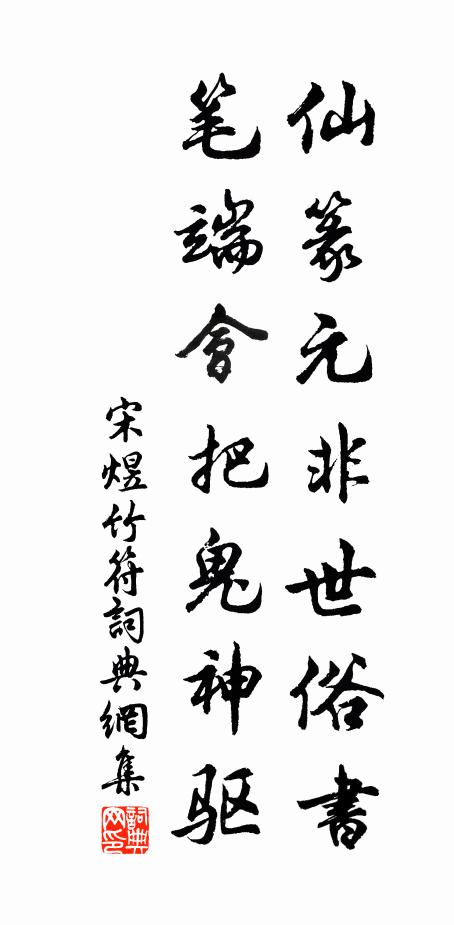 仙篆元非世俗書
笔端會把鬼神驱
宋煜竹符詞典網集
詞典网印